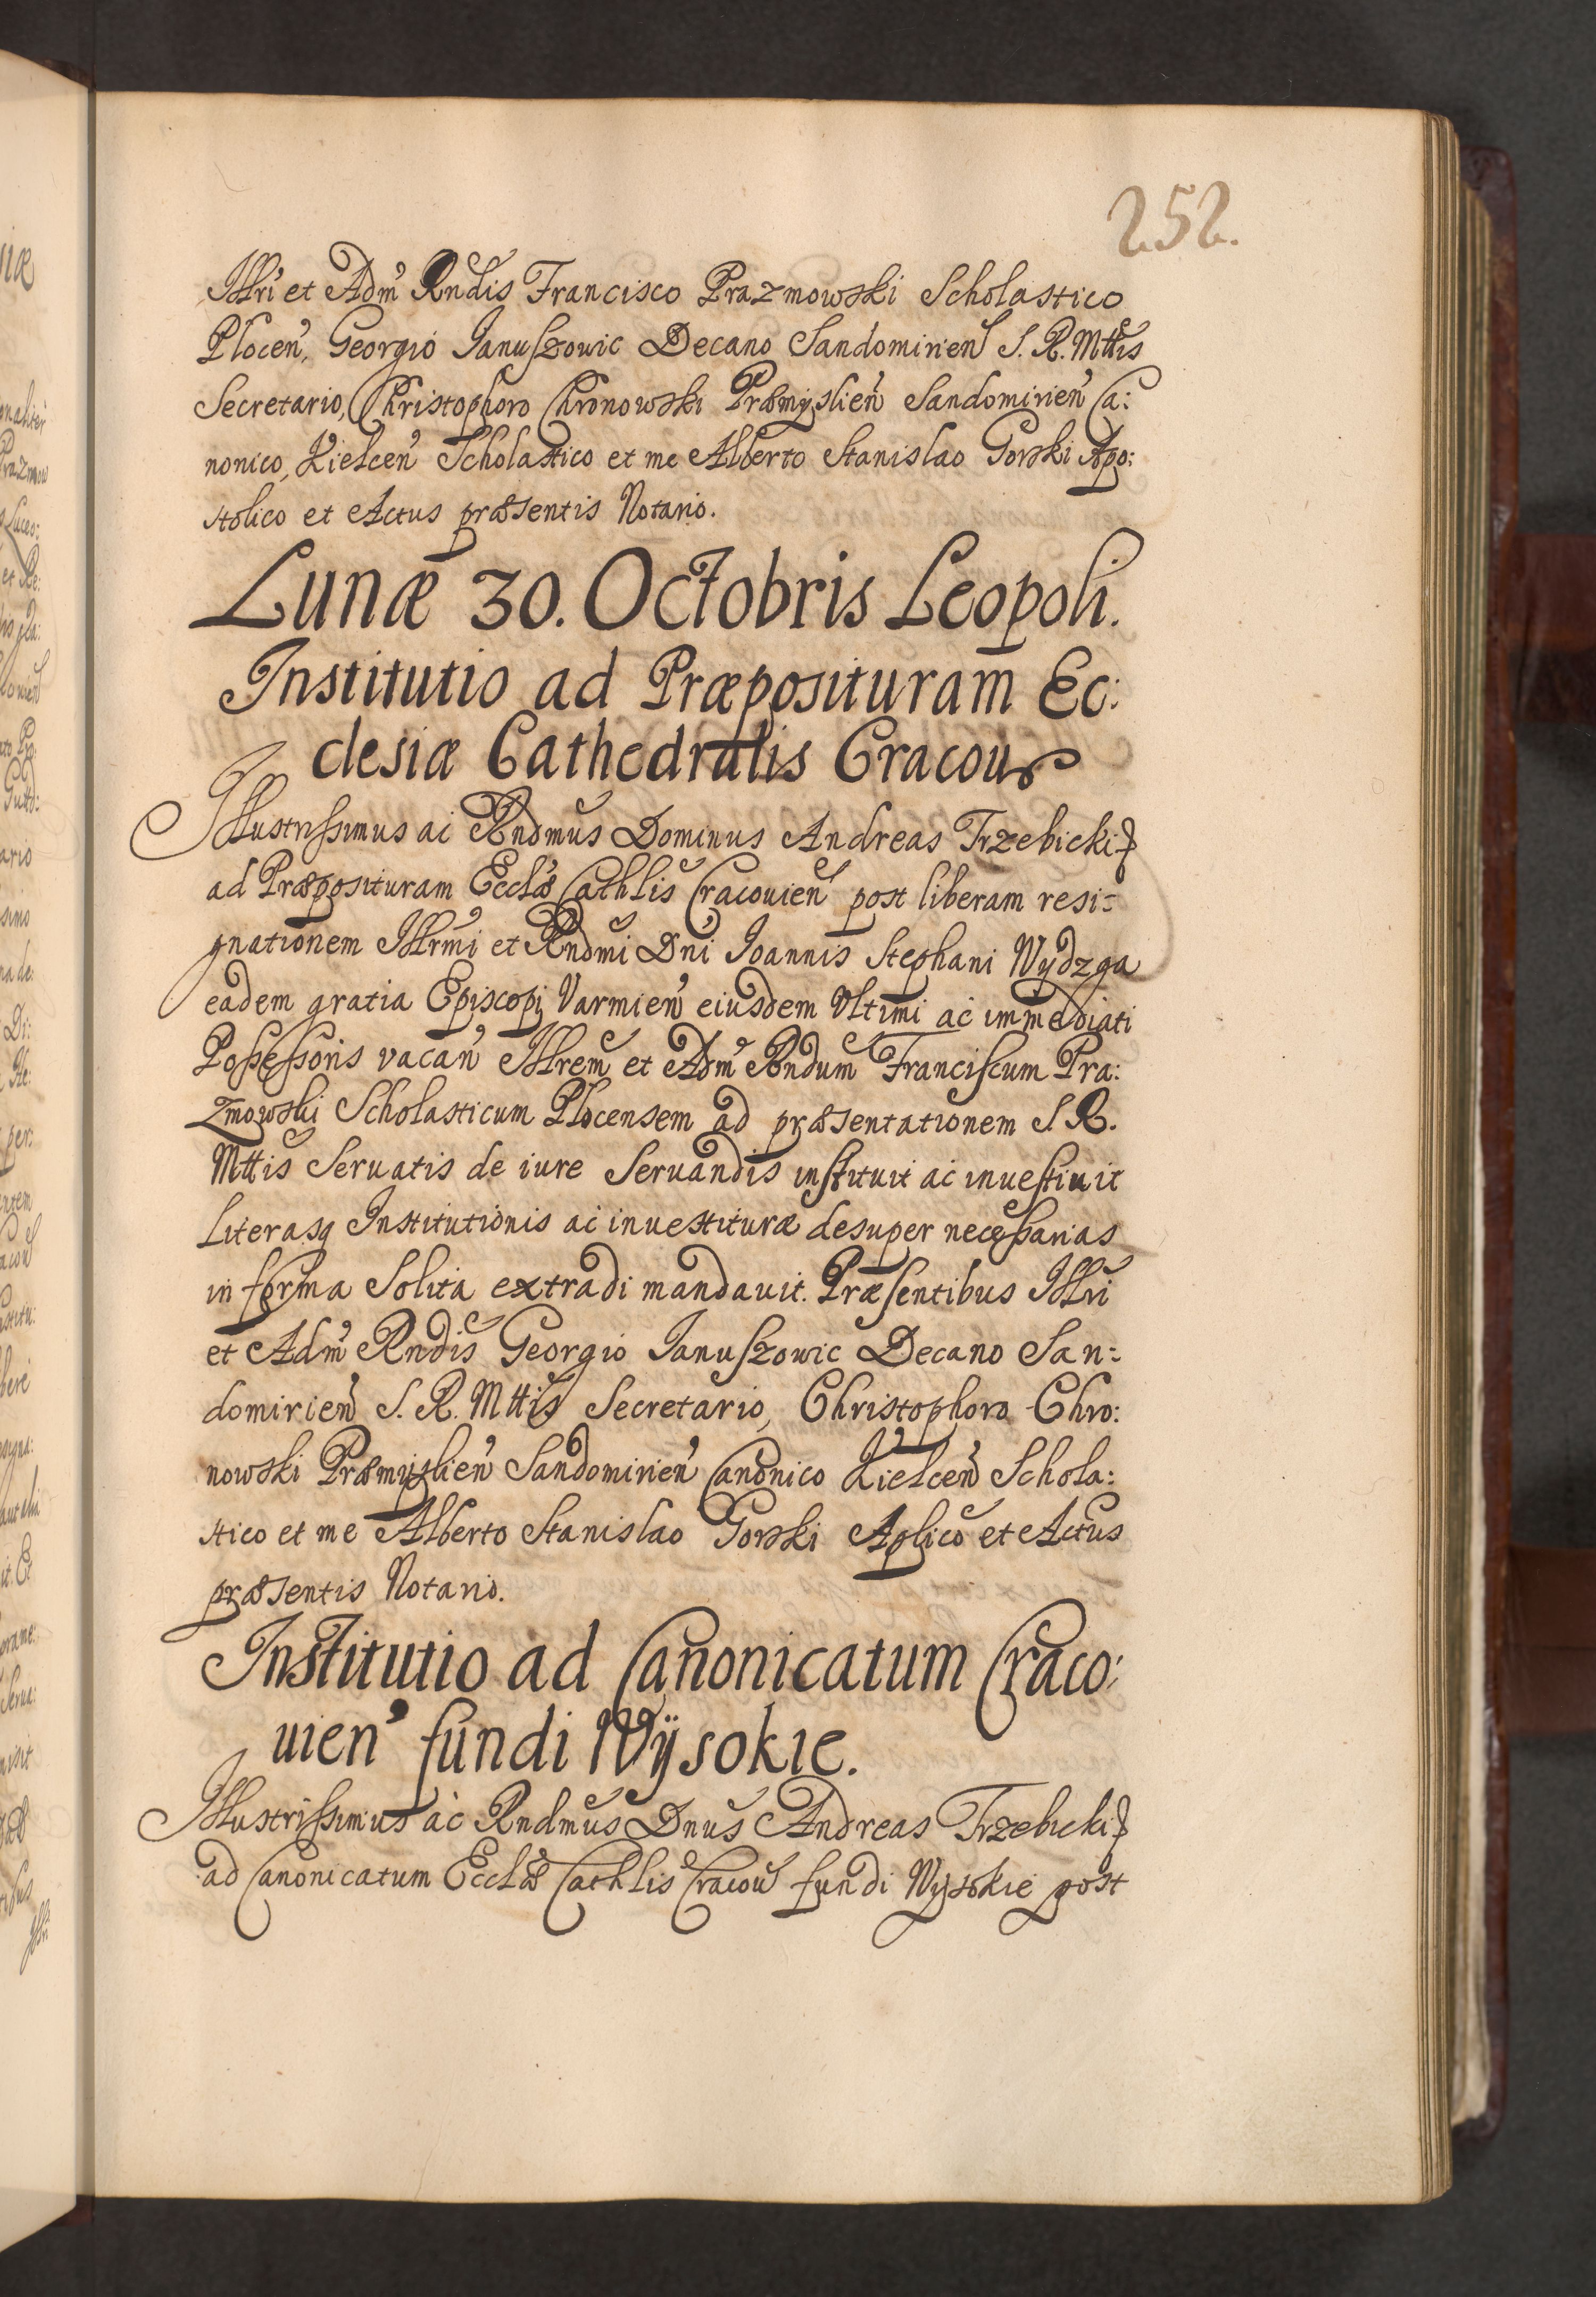 252.
Illri et Adm Rndis Francisco Prazmowski Scholastico
Plocen, Georgio Januszowic Decano Sandomirien S. R. Mttis
Secretario, Christophoro Chronowski Præmyslien Sandomirien Ca:
nonico, Kielcen Scholastico et me Alberto Stanislao Gorski Apo:
stolico et Actus præsentis Notario.
Lunæ 30. Octobris Leopoli.
Institutio ad Præposituram Ec:
clesiæ Cathedralis Cracou
Illustrissimus ac Rndmus Dominus Andreas Trzebicki
ad Præposituram Ecclæ Cathlis Cracouien post liberam resi:
gnationem Illrmi et Rndmi Dni Joannis Stephani Wydzga
eadem gratia Episcopi Varmien eiusdem Vltimi ac immediati
Possessoris vacan Illrem et Adm Rndum Franciscum Pra:
zmowski Scholasticum Plocensem ad præsentationem S R.
Mttis Seruatis de iure Seruandis instituit ac inuestiuit
Literasq Institutionis ac inuestituræ desuper necessarias
in forma Solita extradi mandauit. Præsentibus Illri
et Adm Rndis Georgio Januszowic Decano San:
domirien S. R. Mttis Secretario, Christophoro Chro:
nowski Præmyslien Sandomirien Canonico Kielcen Schola:
stico et me Alberto Stanislao Gorski Aplico et Actus
præsentis Notario.
Institutio ad Canonicatum Craco:
uien fundi Wÿsokie.
Illustrissimus ac Rndmus Dnus Andreas Trzebicki
ad Canonicatum Ecclæ Cathlis Cracou fundi Wysokie post